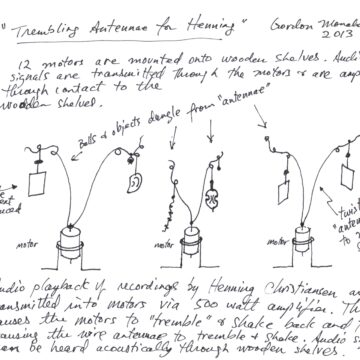 "Trembling Antennae for Henning" Gordon Mona
2013
12 motors are mounted onto wooden shelves. Audi
signals are transmitted through the motors & are amp
through contact to the
wooden shelves.
Bells & objects dangle from "antennae"
motor
motor
motor
twist
"anten
to
udio playback of recordings by Henning Christiansen a
ransmitted into motors via 500 watt amplifier. Th
auses the motors to "tremble" & shake back and
ausing the wire antennae to tremble & shake. Audio
an be heard acoustically through wooden shelves.